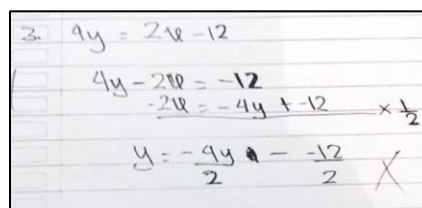 3. 4y = 2x - 12
4y - 2x = -12
-2x = -4y + -12 × 1/2
y = -4y/2 - -12/2 X